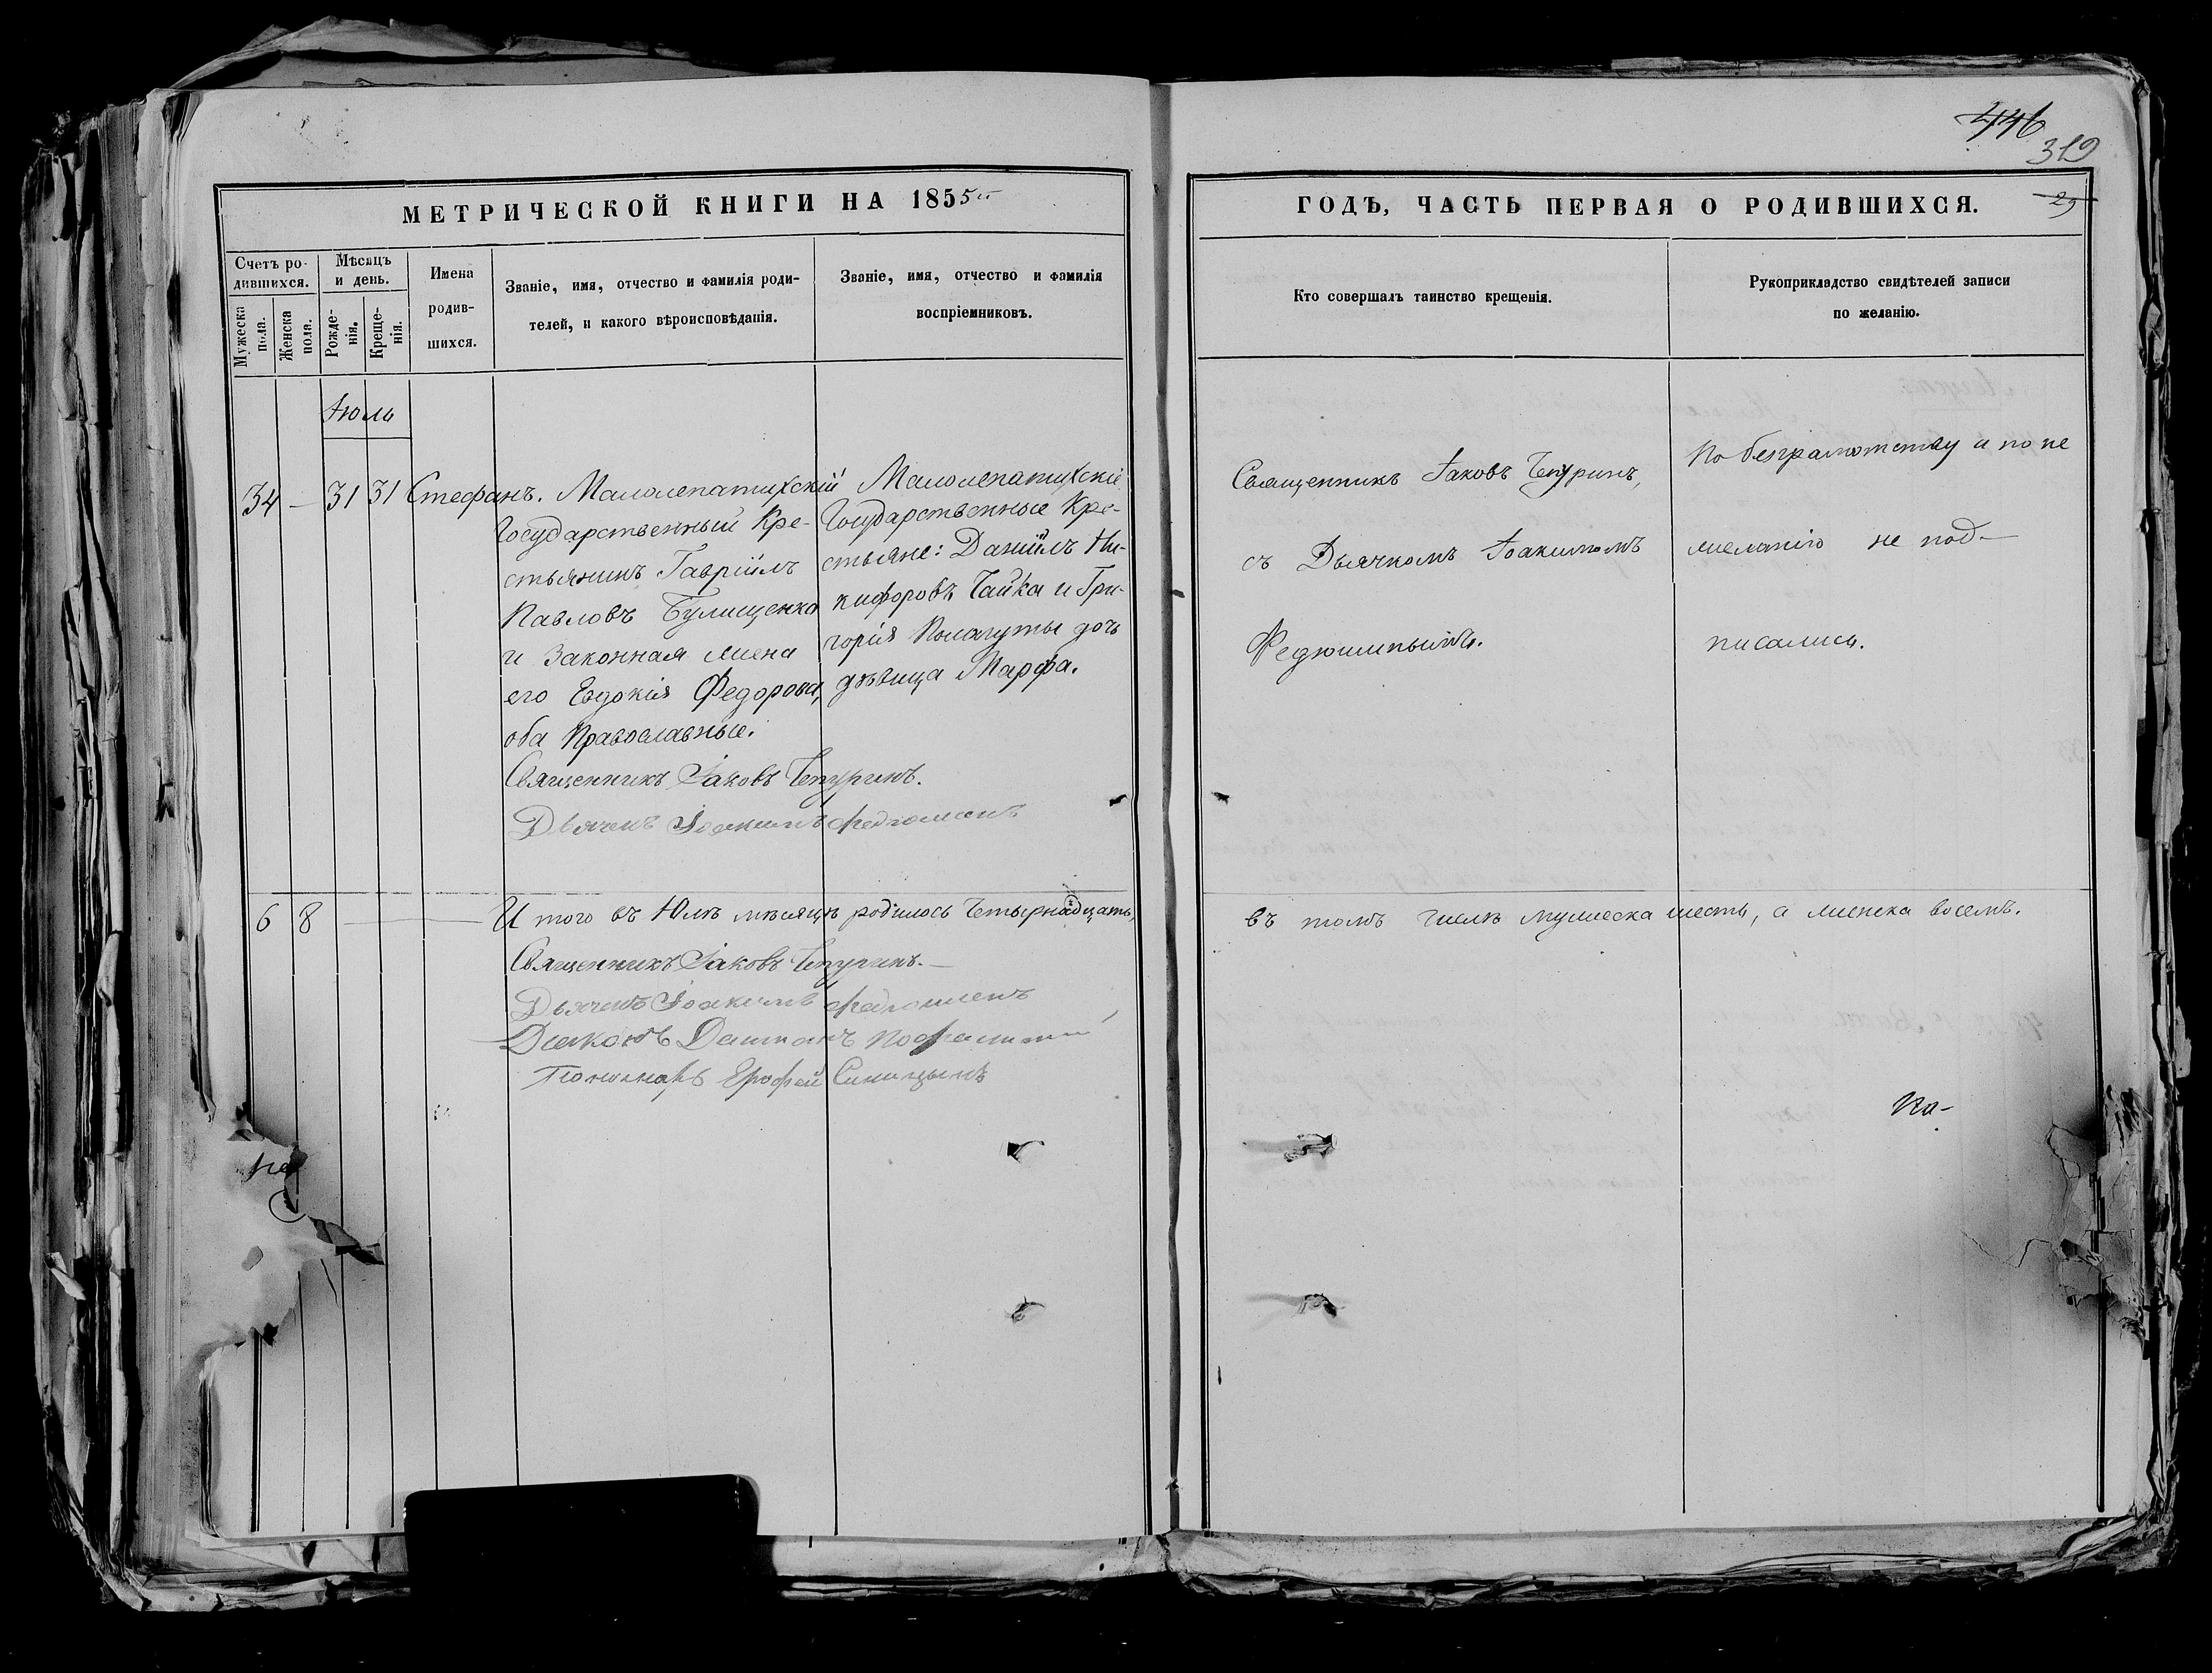 446
319
29
МЕТРИЧЕСКОЙ КНИГИ НА 1855й
ГОДЪ, ЧАСТЬ ПЕРВАЯ О РОДИВШИХСЯ.
Счетъ ро-
дившихся.
Мужеска
пола.
Женска
пола.
Мѣсяцъ
и день.
Рожде-
нія.
Креще-
нія.
Имена
родив-
шихся.
Званіе, имя, отчество и фамилія роди-
телей, и какого вѣроисповѣданія.
Званіе, имя, отчество и фамилія
воспріемниковъ.
Кто совершалъ таинство крещенія.
Рукоприкладство свидѣтелей записи
по желанію.
Іюль
34 — 31 31 Стефанъ.
Малолепатихскій
Государственный Кре-
стьянинъ Гавріилъ
Павловъ Булищенко
и законная жена
его Евдокія Федорова,
оба Православные.
Священникъ Іаковъ Чепуринъ.
Дьячекъ Іоакимъ Федюшинъ
Малолепатихскіе
Государственные Кре-
стьяне: Даніилъ Ни-
кифоровъ Чайка и Гри-
горія Колагуты дочь
дѣвица Марфа.
Священникъ Іаковъ Чепуринъ,
съ Дьячкомъ Іоакимомъ
Федюшинымъ.
По безграмотству и по не
желанію не под-
писались.
6 8 — И того въ Юлѣ мѣсяцѣ родилось Четырнадцать,
въ томъ числѣ мужеска шесть, а женска восемь.
Священникъ Іаковъ Чепуринъ.—
Дьячекъ Іоакимъ Федюшинъ
Диаконъ
Пономарь Ерофей Синицынъ
На-